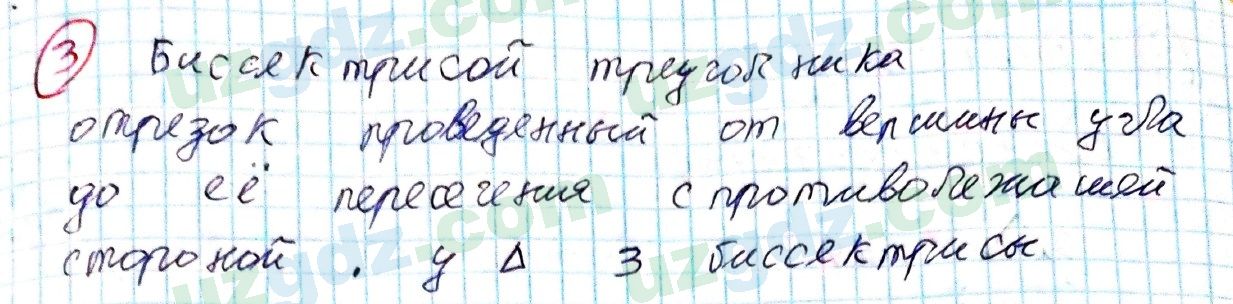 3 Биссектрисой треугольника
отрезок проведенный от вершины угла
до её пересечения с противолежащей
стороной. у Δ 3 биссектрисы.